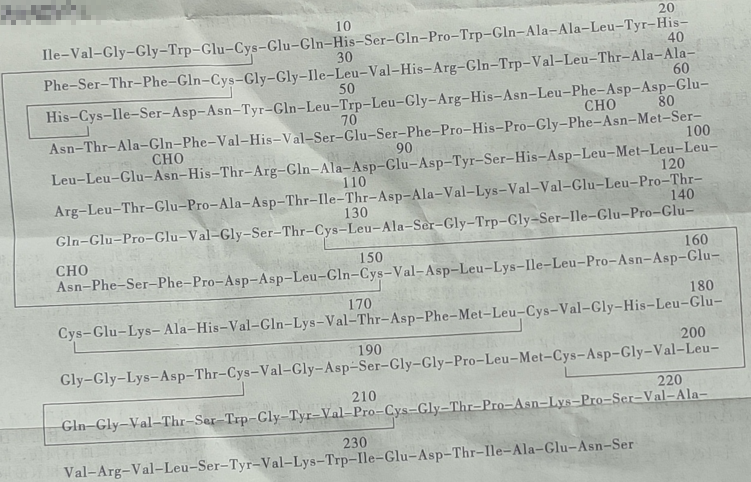 10 20
Ile-Val-Gly-Gly-Trp-Glu-Cys-Glu-Gln-His-Ser-Gln-Pro-Trp-Gln-Ala-Ala-Leu-Tyr-His-
30 40
Phe-Ser-Thr-Phe-Gln-Cys-Gly-Gly-Ile-Leu-Val-His-Arg-Gln-Trp-Val-Leu-Thr-Ala-Ala-
50 60
His-Cys-Ile-Ser-Asp-Asn-Tyr-Gln-Leu-Trp-Leu-Gly-Arg-His-Asn-Leu-Phe-Asp-Asp-Glu-
70 CHO 80
Asn-Thr-Ala-Gln-Phe-Val-His-Val-Ser-Glu-Ser-Phe-Pro-His-Pro-Gly-Phe-Asn-Met-Ser-
CHO 90 100
Leu-Leu-Glu-Asn-His-Thr-Arg-Gln-Ala-Asp-Glu-Asp-Tyr-Ser-His-Asp-Leu-Met-Leu-Leu-
110 120
Arg-Leu-Thr-Glu-Pro-Ala-Asp-Thr-Ile-Thr-Asp-Ala-Val-Lys-Val-Val-Glu-Leu-Pro-Thr-
130 140
Gln-Glu-Pro-Glu-Val-Gly-Ser-Thr-Cys-Leu-Ala-Ser-Gly-Trp-Gly-Ser-Ile-Glu-Pro-Glu-
CHO 150 160
Asn-Phe-Ser-Phe-Pro-Asp-Asp-Leu-Gln-Cys-Val-Asp-Leu-Lys-Ile-Leu-Pro-Asn-Asp-Glu-
170 180
Cys-Glu-Lys-Ala-His-Val-Gln-Lys-Val-Thr-Asp-Phe-Met-Leu-Cys-Val-Gly-His-Leu-Glu-
190 200
Gly-Gly-Lys-Asp-Thr-Cys-Val-Gly-Asp-Ser-Gly-Gly-Pro-Leu-Met-Cys-Asp-Gly-Val-Leu-
210 220
Gln-Gly-Val-Thr-Ser-Trp-Gly-Tyr-Val-Pro-Cys-Gly-Thr-Pro-Asn-Lys-Pro-Ser-Val-Ala-
230
Val-Arg-Val-Leu-Ser-Tyr-Val-Lys-Trp-Ile-Glu-Asp-Thr-Ile-Ala-Glu-Asn-Ser